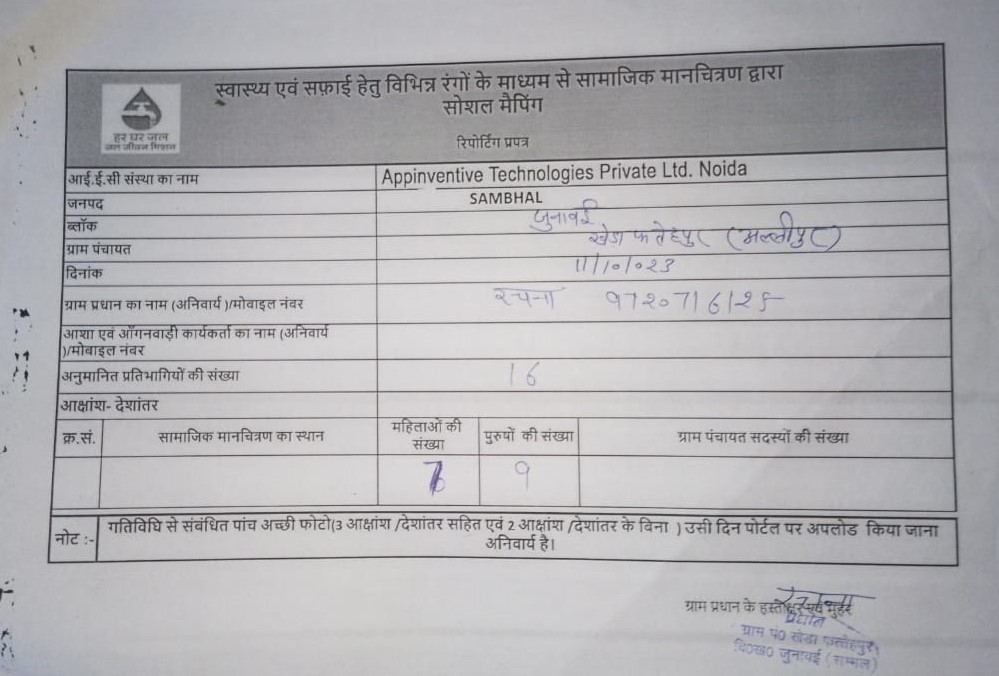 स्वास्थ्य एवं सफ़ाई हेतु विभिन्न रंगों के माध्यम से सामाजिक मानचित्रण द्वारा
सोशल मैपिंग
हर घर जल
जल जीवन मिशन
रिपोर्टिंग प्रपत्र
आई.ई.सी संस्था का नाम Appinventive Technologies Private Ltd. Noida
जनपद SAMBHAL
ब्लॉक जुनावई
ग्राम पंचायत खेडा फतेहपुर (मल्लीपुर)
दिनांक 11/10/023
ग्राम प्रधान का नाम (अनिवार्य )/मोबाइल नंबर रचना
आशा एवं आँगनवाड़ी कार्यकर्ता का नाम (अनिवार्य
)/मोबाइल नंबर
अनुमानित प्रतिभागियों की संख्या 16
आक्षांश- देशांतर
क्र.सं. सामाजिक मानचित्रण का स्थान महिलाओं की संख्या पुरुषों की संख्या ग्राम पंचायत सदस्यों की संख्या
9
नोट :- गतिविधि से संबंधित पांच अच्छी फोटो(3 आक्षांश /देशांतर सहित एवं 2 आक्षांश /देशांतर के विना ) उसी दिन पोर्टल पर अपलोड किया जाना
अनिवार्य है।
रचना
ग्राम प्रधान के हस्ताक्षर एवं मुहर
प्रधान
ग्राम पं0 खेडा फतेहपुर
वि0ख0 जुनावई (सम्भल)